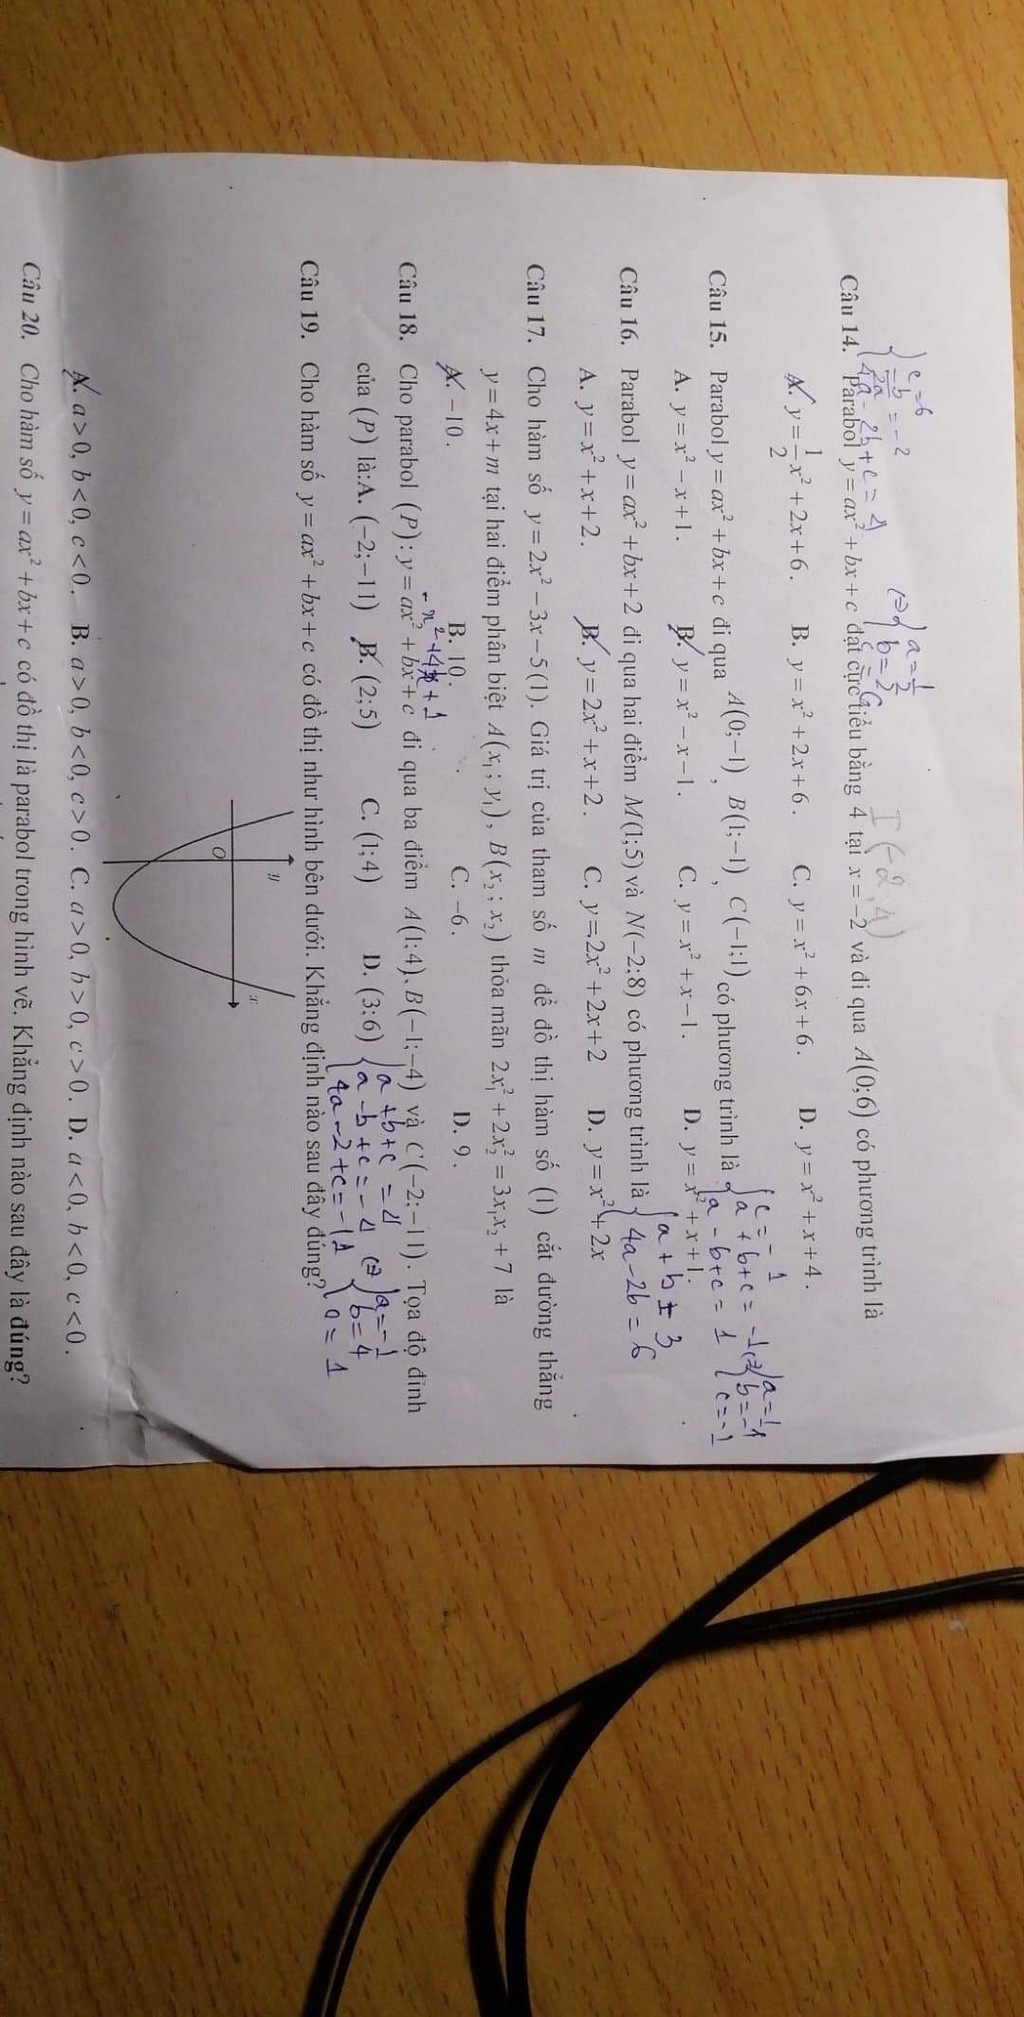 { c=6
-b/2a = -2
4a - 2b + c = 4
(=) { a = 1/2
b = 2
c = 6
I(-2;4)
Câu 14. Parabol y = ax² + bx + c đạt cực tiểu bằng 4 tại x = −2 và đi qua A(0;6) có phương trình là
A. y = 1/2 x² + 2x + 6. B. y = x² + 2x + 6. C. y = x² + 6x + 6. D. y = x² + x + 4.
Câu 15. Parabol y = ax² + bx + c đi qua A(0;−1), B(1;−1), C(−1;1) có phương trình là
{ c = -1
a + b + c = -1
a - b + c = 1
(=) { a = 1
b = -1
c = -1
A. y = x² − x + 1. B. y = x² − x − 1. C. y = x² + x − 1. D. y = x² + x + 1.
Câu 16. Parabol y = ax² + bx + 2 đi qua hai điểm M(1;5) và N(−2;8) có phương trình là
{ a + b = 3
4a - 2b = 6
A. y = x² + x + 2. B. y = 2x² + x + 2. C. y = 2x² + 2x + 2 D. y = x² + 2x
Câu 17. Cho hàm số y = 2x² − 3x − 5 (1). Giá trị của tham số m để đồ thị hàm số (1) cắt đường thẳng
y = 4x + m tại hai điểm phân biệt A(x₁; y₁), B(x₂; x₂) thỏa mãn 2x₁² + 2x₂² = 3x₁x₂ + 7 là
A. −10. B. 10. C. −6. D. 9.
-x² + 4x + 1
Câu 18. Cho parabol (P): y = ax² + bx + c đi qua ba điểm A(1;4), B(−1;−4) và C(−2;−11). Tọa độ đỉnh
của (P) là:A. (−2;−11) B. (2;5) C. (1;4) D. (3;6)
{ a + b + c = 4
a - b + c = -4
4a - 2 + c = -11
(=) { a = -1
b = 4
c = 1
Câu 19. Cho hàm số y = ax² + bx + c có đồ thị như hình bên dưới. Khẳng định nào sau đây đúng?
y
x
O
A. a > 0, b < 0, c < 0. B. a > 0, b < 0, c > 0. C. a > 0, b > 0, c > 0. D. a < 0, b < 0, c < 0.
Câu 20. Cho hàm số y = ax² + bx + c có đồ thị là parabol trong hình vẽ. Khẳng định nào sau đây là đúng?